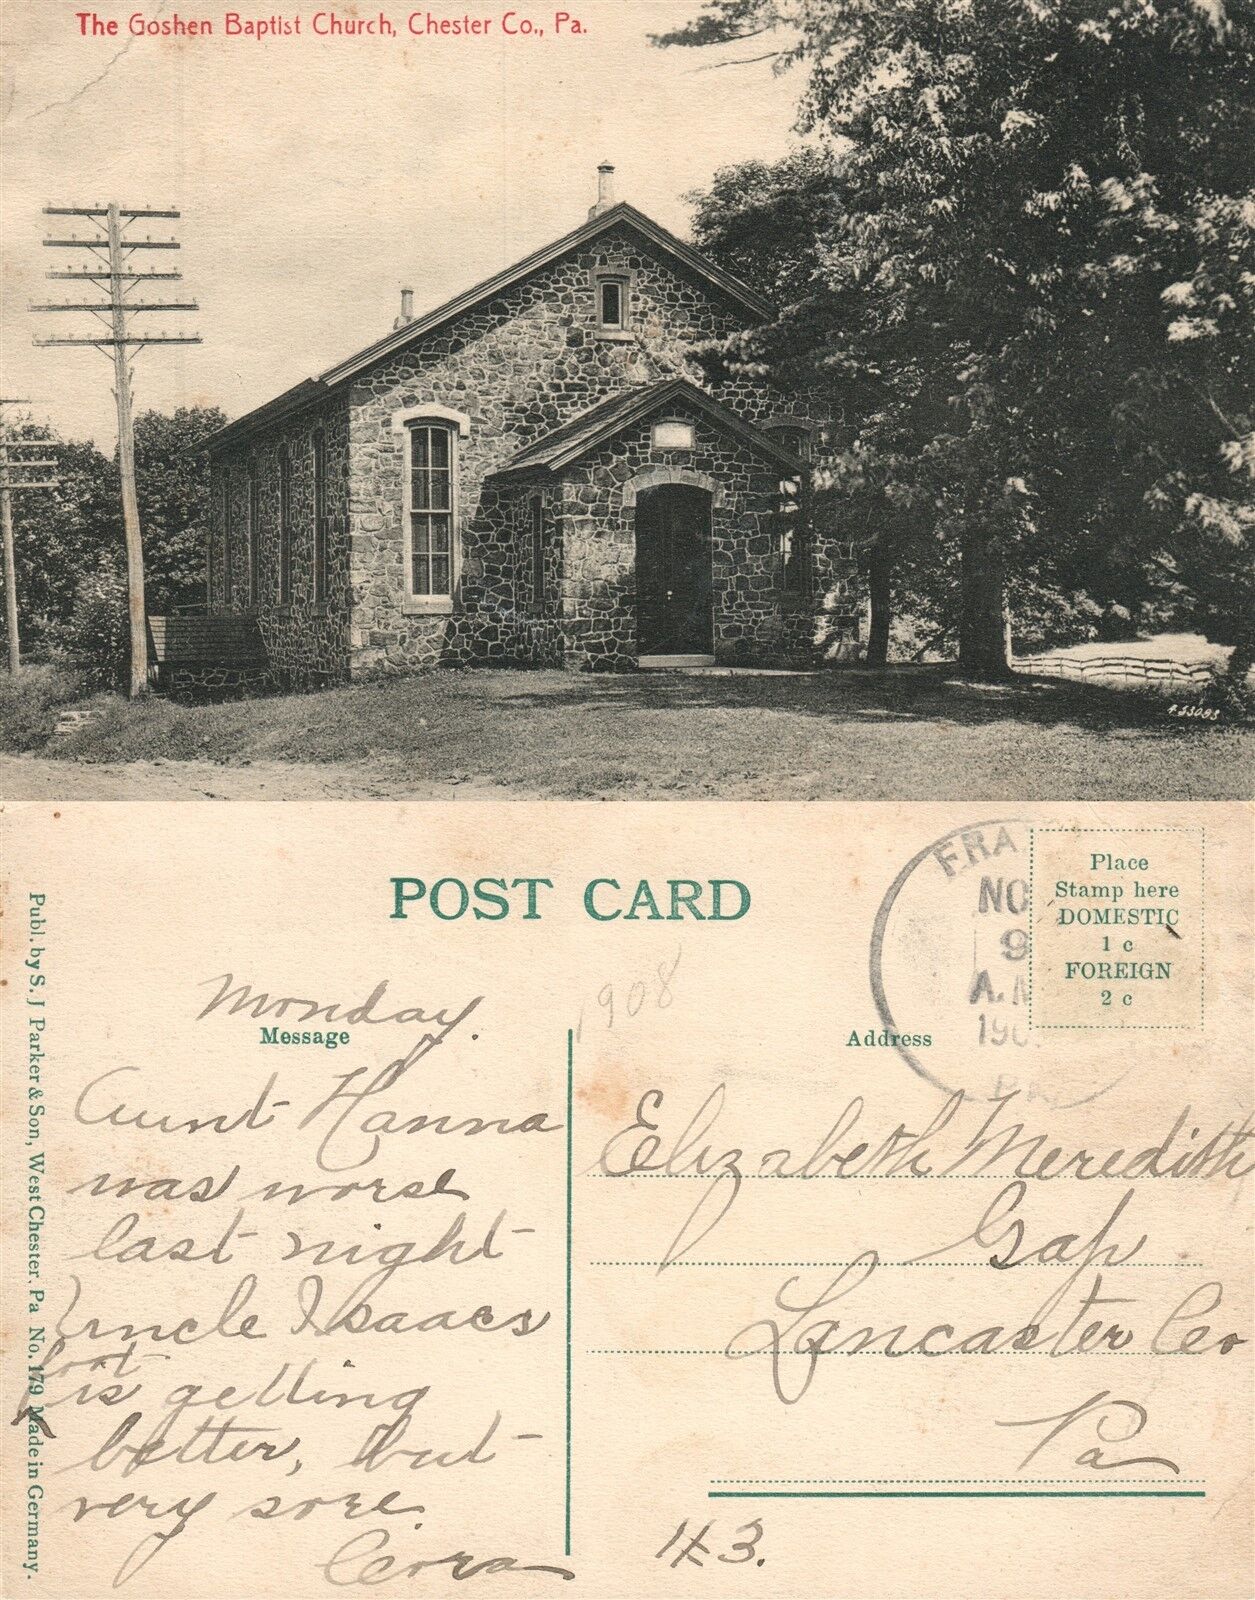 The Goshen Baptist Church, Chester Co., Pa.
POST CARD
Place
Stamp here
DOMESTIC
1 c
FOREIGN
2 c
FRA
NO
9
A.M
190
PA
1908
Monday.
Message
Address
Aunt Hanna
was worse
last night
Uncle Isaacs
foot
is getting
better, but
very sore.
Cora
Elizabeth Meredith
Gap
Lancaster Co
Pa
#3.
Publ. by S. J Parker & Son, West Chester, Pa No. 179 Made in Germany.